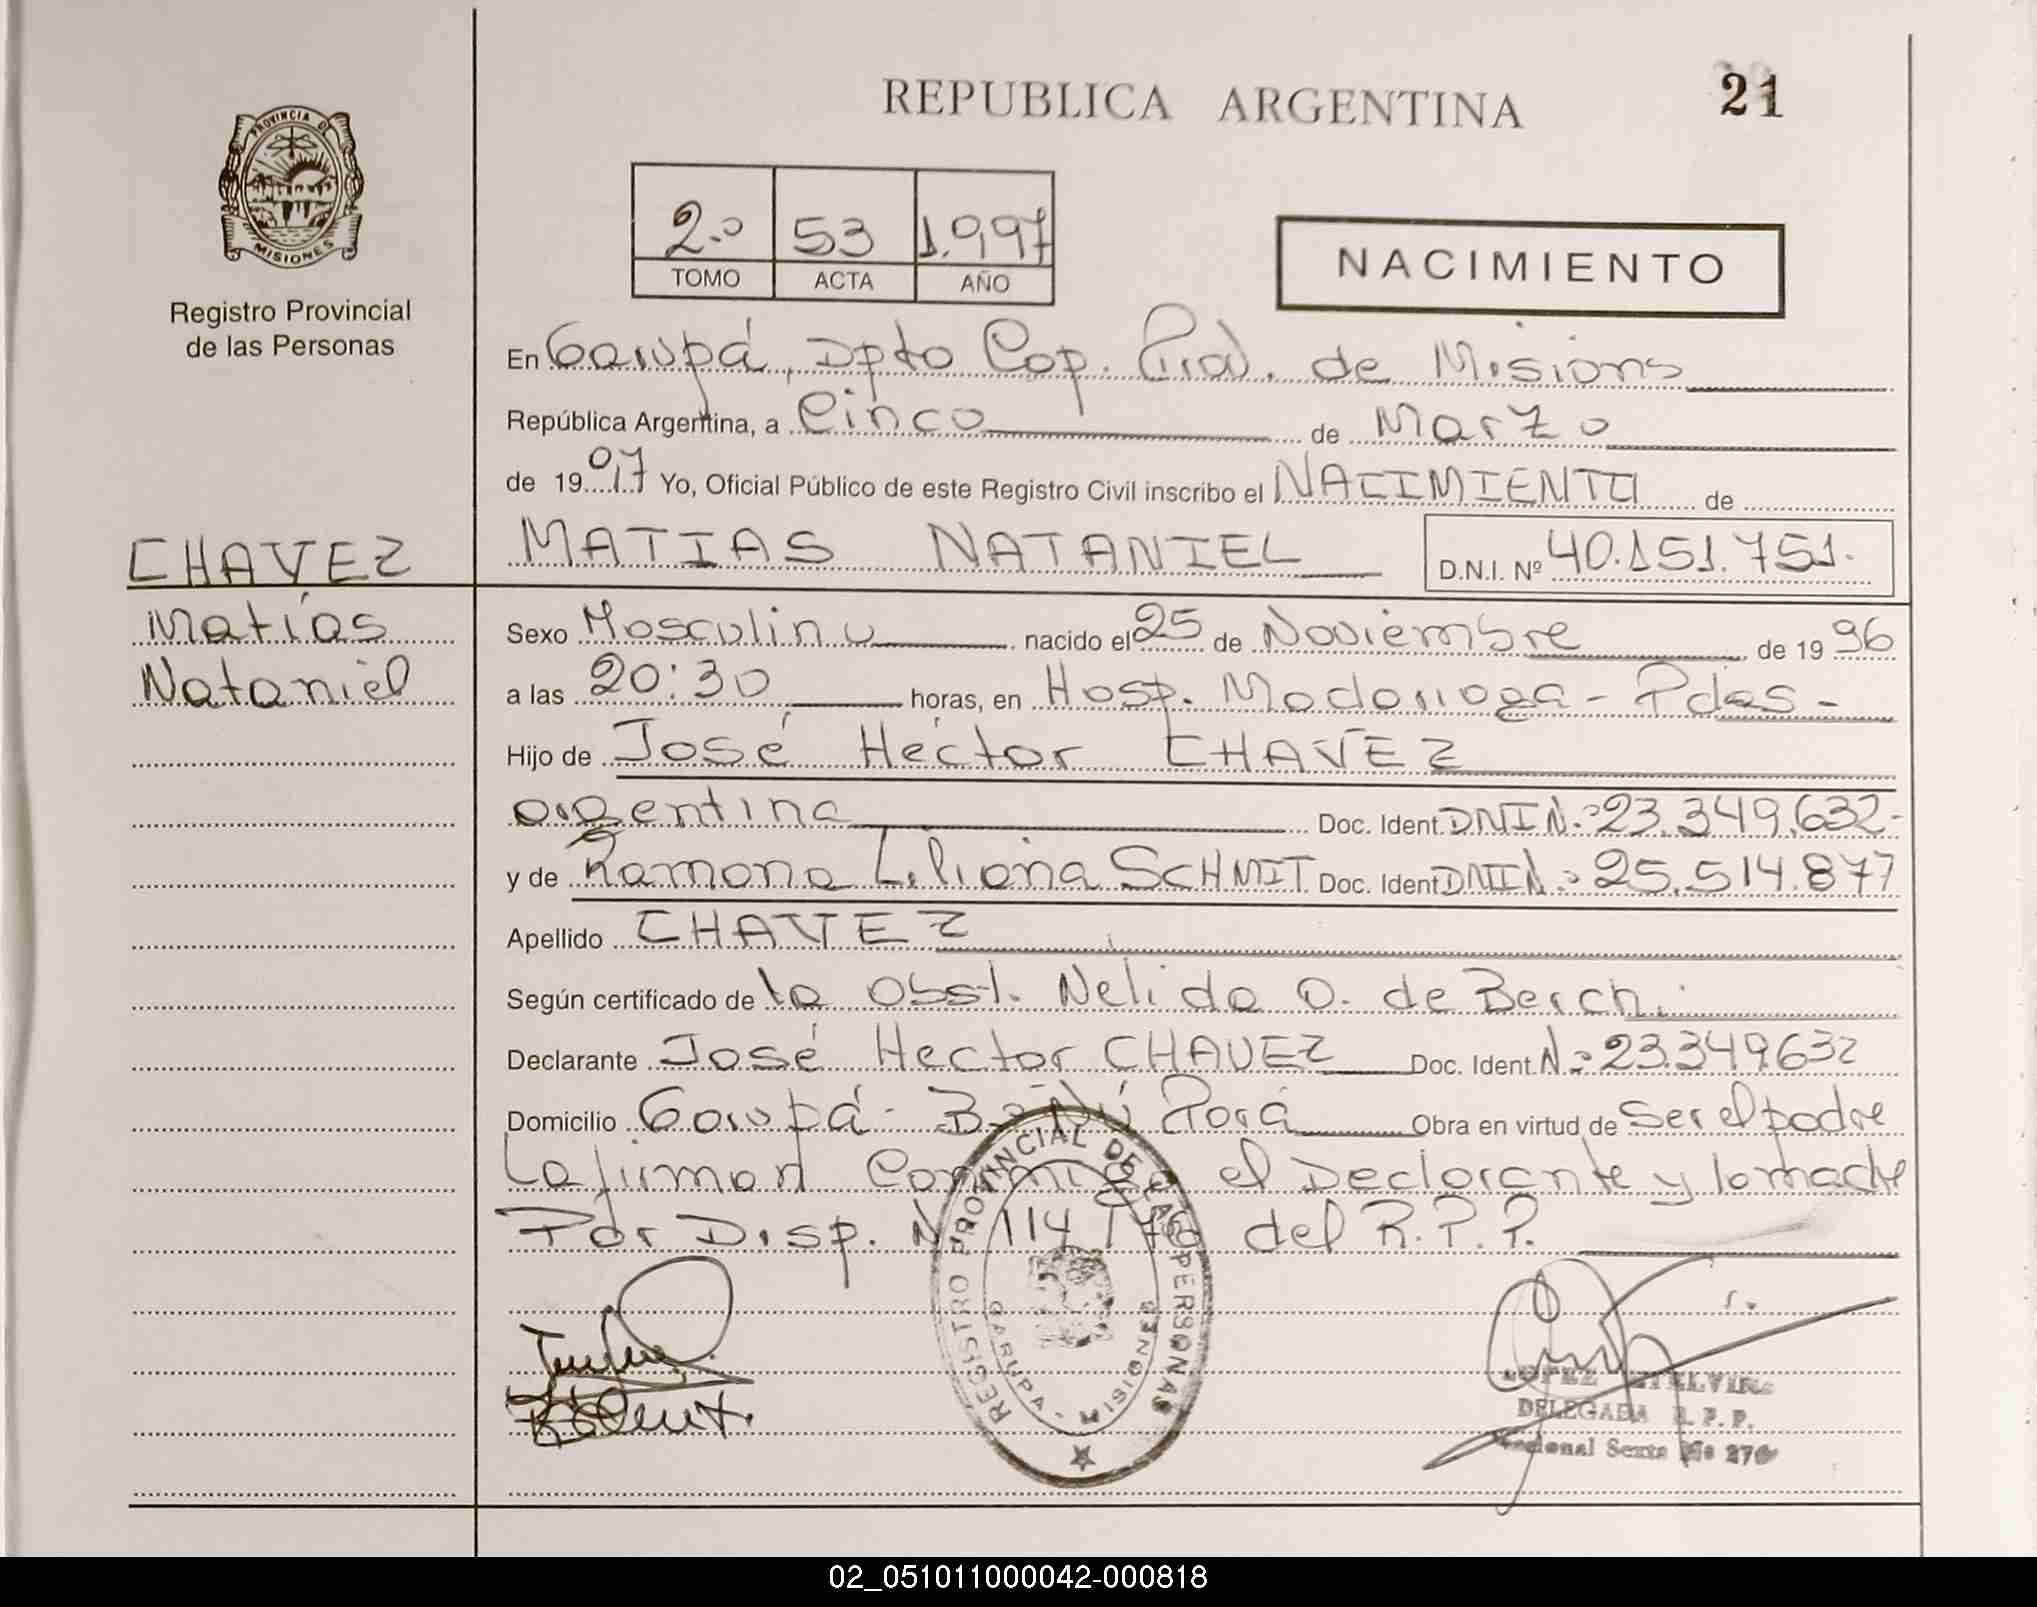 REPUBLICA ARGENTINA
21
PROVINCIA D
MISIONES
Registro Provincial
de las Personas
2.º 53 1.997
TOMO ACTA AÑO
NACIMIENTO
En Garupá, Dpto Cap. Pcial. de Misiones
República Argentina, a Cinco de Marzo
de 1997 Yo, Oficial Público de este Registro Civil inscribo el NACIMIENTO de
CHAVEZ
Matías
Nataniel
MATIAS NATANIEL D.N.I. Nº 40.151.751.
Sexo Masculino nacido el 25 de Noviembre de 1996
a las 20:30 horas, en Hosp. Madariaga - Pdas -
Hijo de José Héctor CHAVEZ
argentina Doc. Ident. DNI N.º 23.349.632-
y de Ramona Liliana SCHMIT Doc. Ident DNI N.º 25.514.877
Apellido CHAVEZ
Según certificado de la Obst. Nelida O. de Berchi.
Declarante José Hector CHAVEZ Doc. Ident. N.º 23.349632
Domicilio Garupá - Bº Ñú Porá Obra en virtud de Ser el padre
La firman Conmigo el Declarante y la madre
Por Disp. Nº 114/76 del R.P.P.
REGISTRO PROVINCIAL DE LAS PERSONAS
GARUPA - MISIONES
LOPEZ ETELVINA
DELEGADA R.P.P.
Seccional Sexta Nº 276
02_051011000042-000818